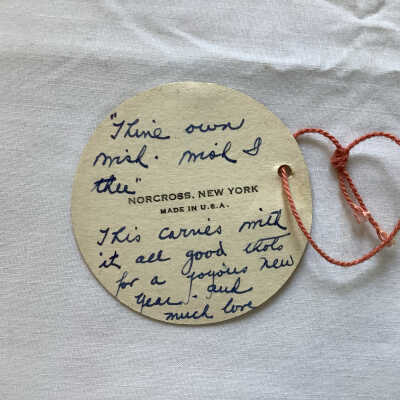 "Thine own
wish. wish I
thee"
NORCROSS, NEW YORK
MADE IN U.S.A.
This carries with
it all good thots
for a joyous new
Year. and
much love